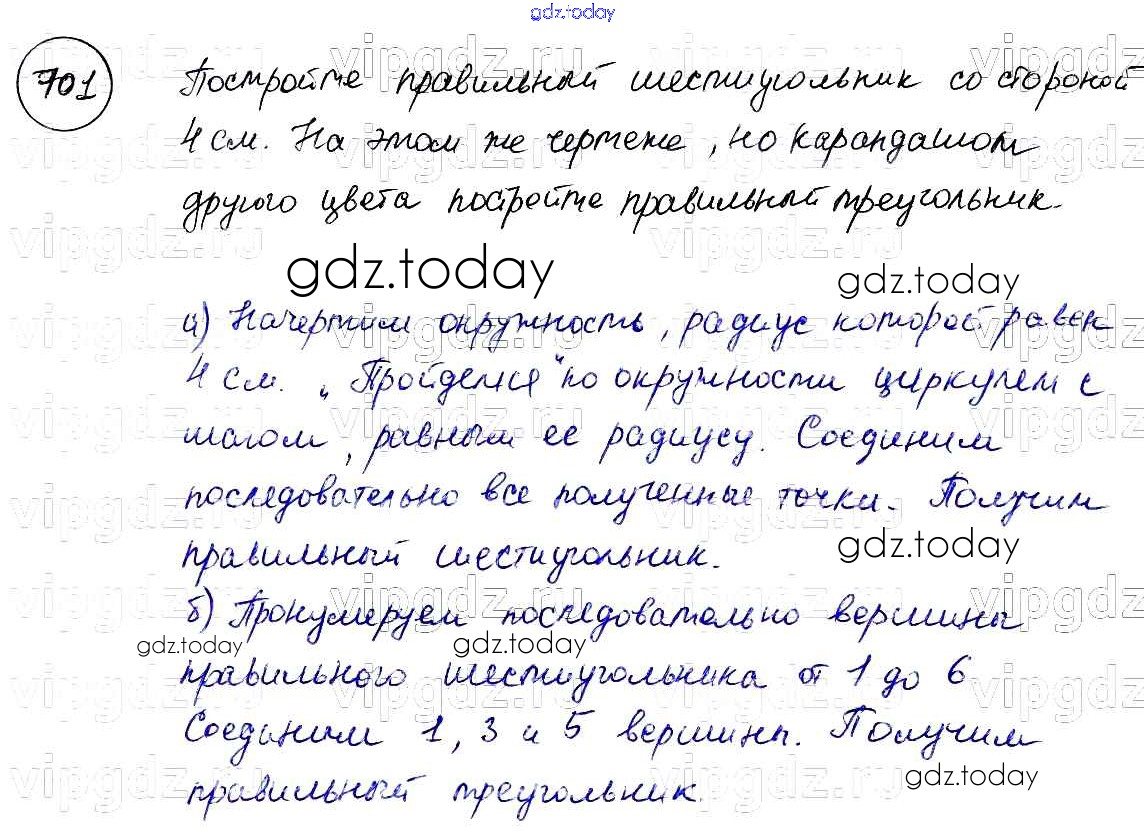 gdz.today
701 Постройте правильный шестиугольник со стороной
4 см. На этом же чертеже, но карандашом
другого цвета постройте правильный треугольник.
gdz.today gdz.today
а) Начертим окружность, радиус которой равен
4 см. „Пройдемся" по окружности циркулем с
шагом, равным ее радиусу. Соединим
последовательно все полученные точки. Получим
правильный шестиугольник.
gdz.today
б) Пронумеруем последовательно вершины
gdz.today gdz.today
правильного шестиугольника от 1 до 6
Соединим 1, 3 и 5 вершины. Получим
gdz.today
правильный треугольник.
vipgdz.ru